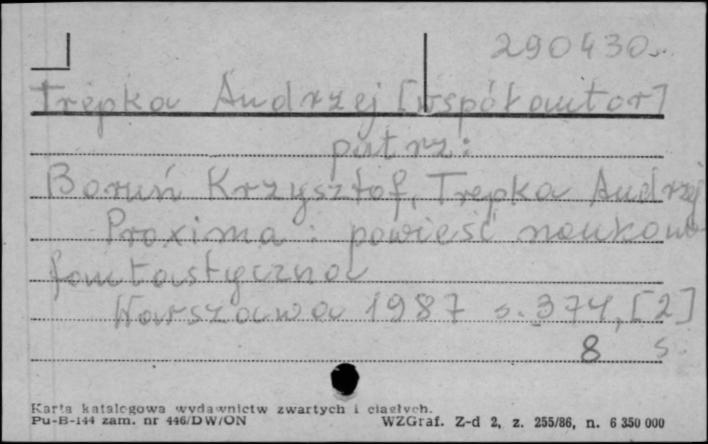 290430
Trepka Andrzej [współautor]
patrz:
Boruń Krzysztof, Trepka Andrzej
Proxima : powieść naukowo-
fantastyczna
Warszawa 1987 s. 374, [2]
8 s.
Karta katalogowa wydawnictw zwartych i ciągłych.
Pu-B-144 zam. nr 446/DW/ON WZGraf. Z-d 2, z. 255/86, n. 6 350 000